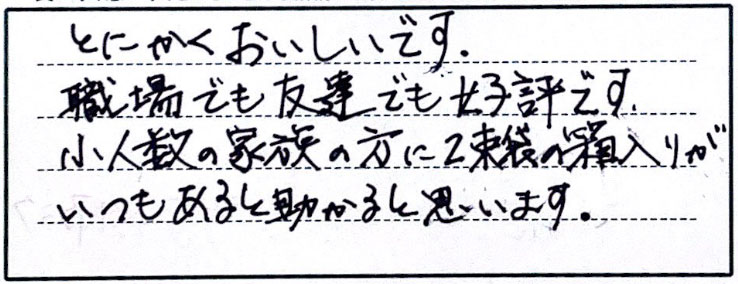 とにかくおいしいです.
職場でも友達でも好評です.
小人数の家族の方に2束袋の箱入りが
いつもあると助かると思います。